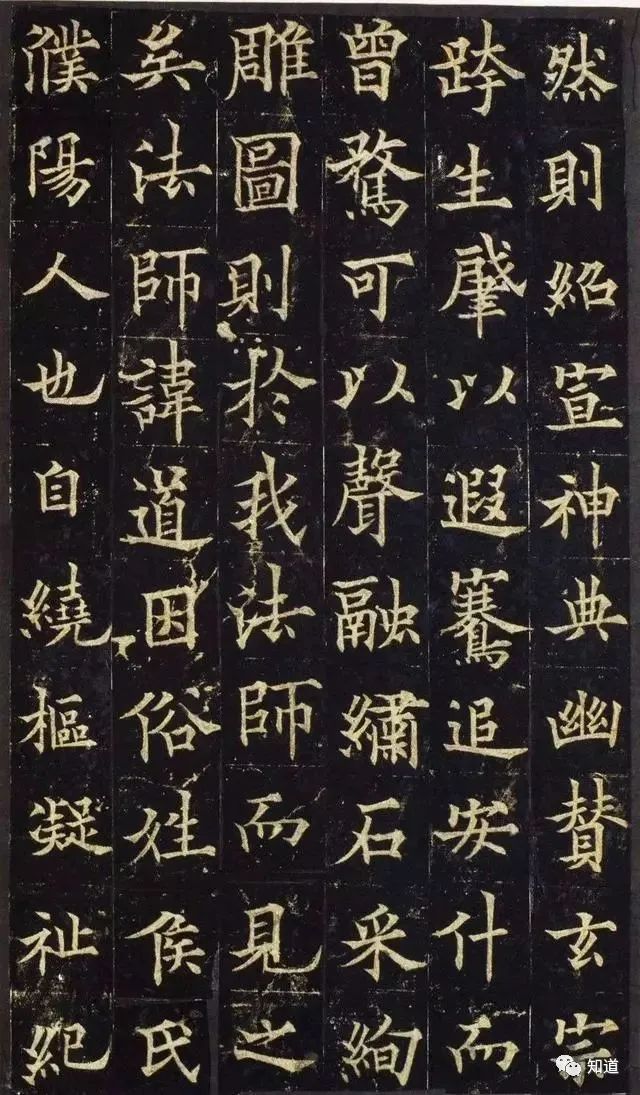 然則紹宣神典幽贊玄宗
跨生肇以遐騫追安什而
曾騖可以聲融繡石采絢
雕圖則於我法師而見之
矣法師諱道因俗姓侯氏
濮陽人也自繞樞凝祉紀
知道